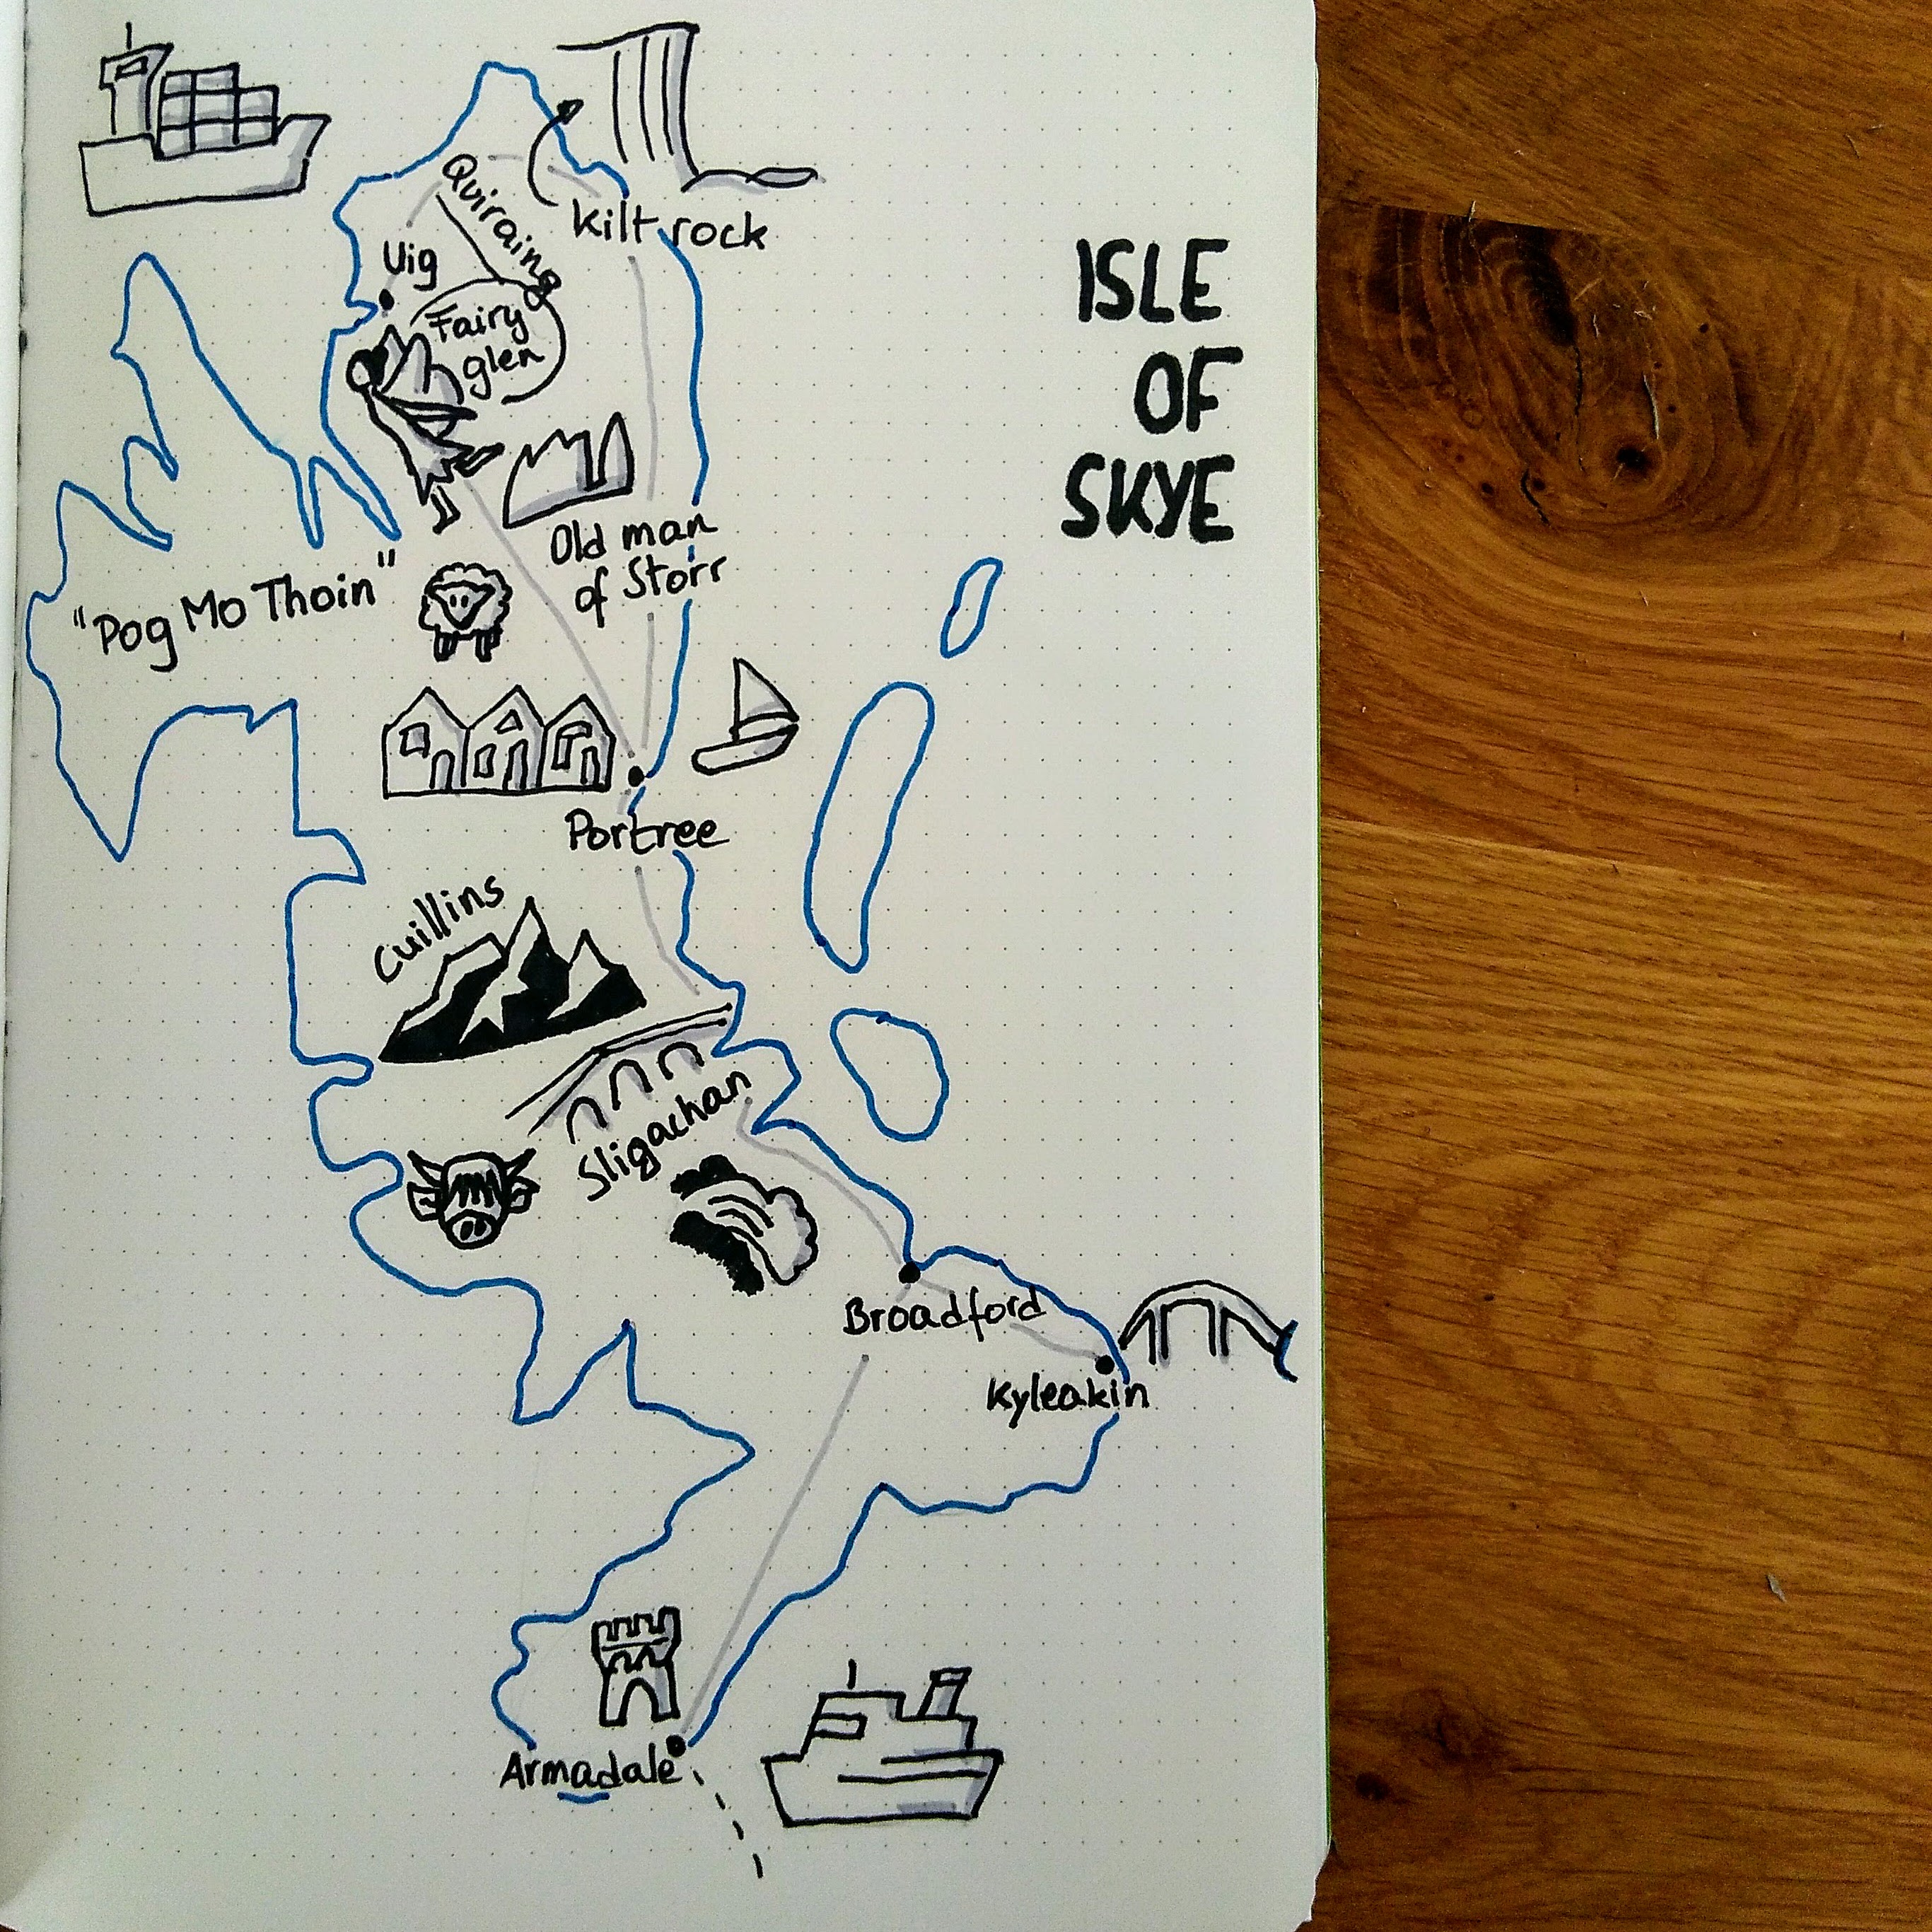 ISLE
OF
SKYE
Quiraing
Kilt rock
Uig
Fairy
glen
Old man
of Storr
"Pog Mo Thoin"
Portree
Cuillins
Sligachan
Broadford
Kyleakin
Armadale